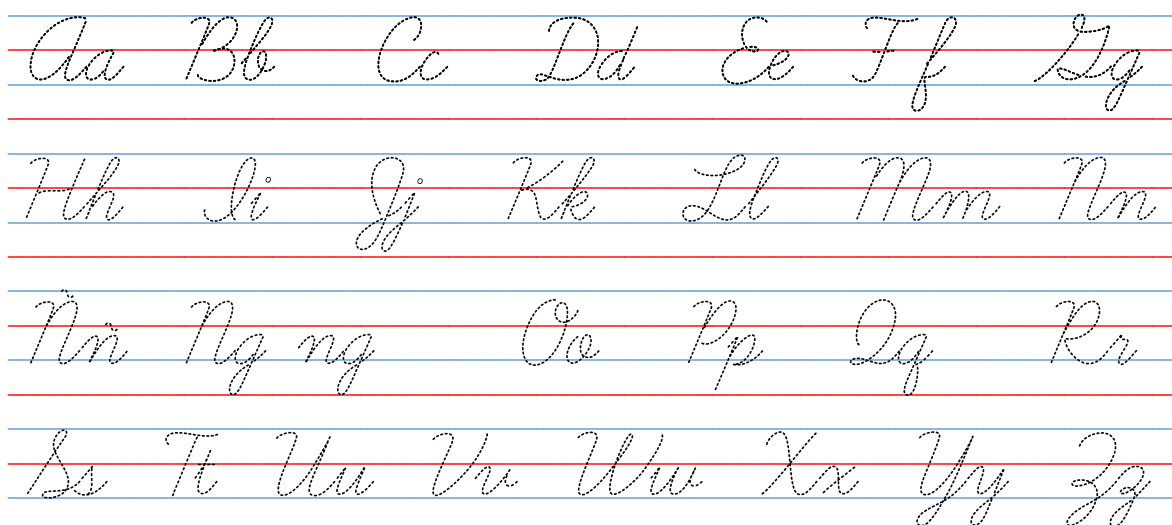 Aa Bb Cc Dd Ee Ff Gg
Hh Ii Jj Kk Ll Mm Nn
Ññ Ng ng Oo Pp Qq Rr
Ss Tt Uu Vv Ww Xx Yy Zz